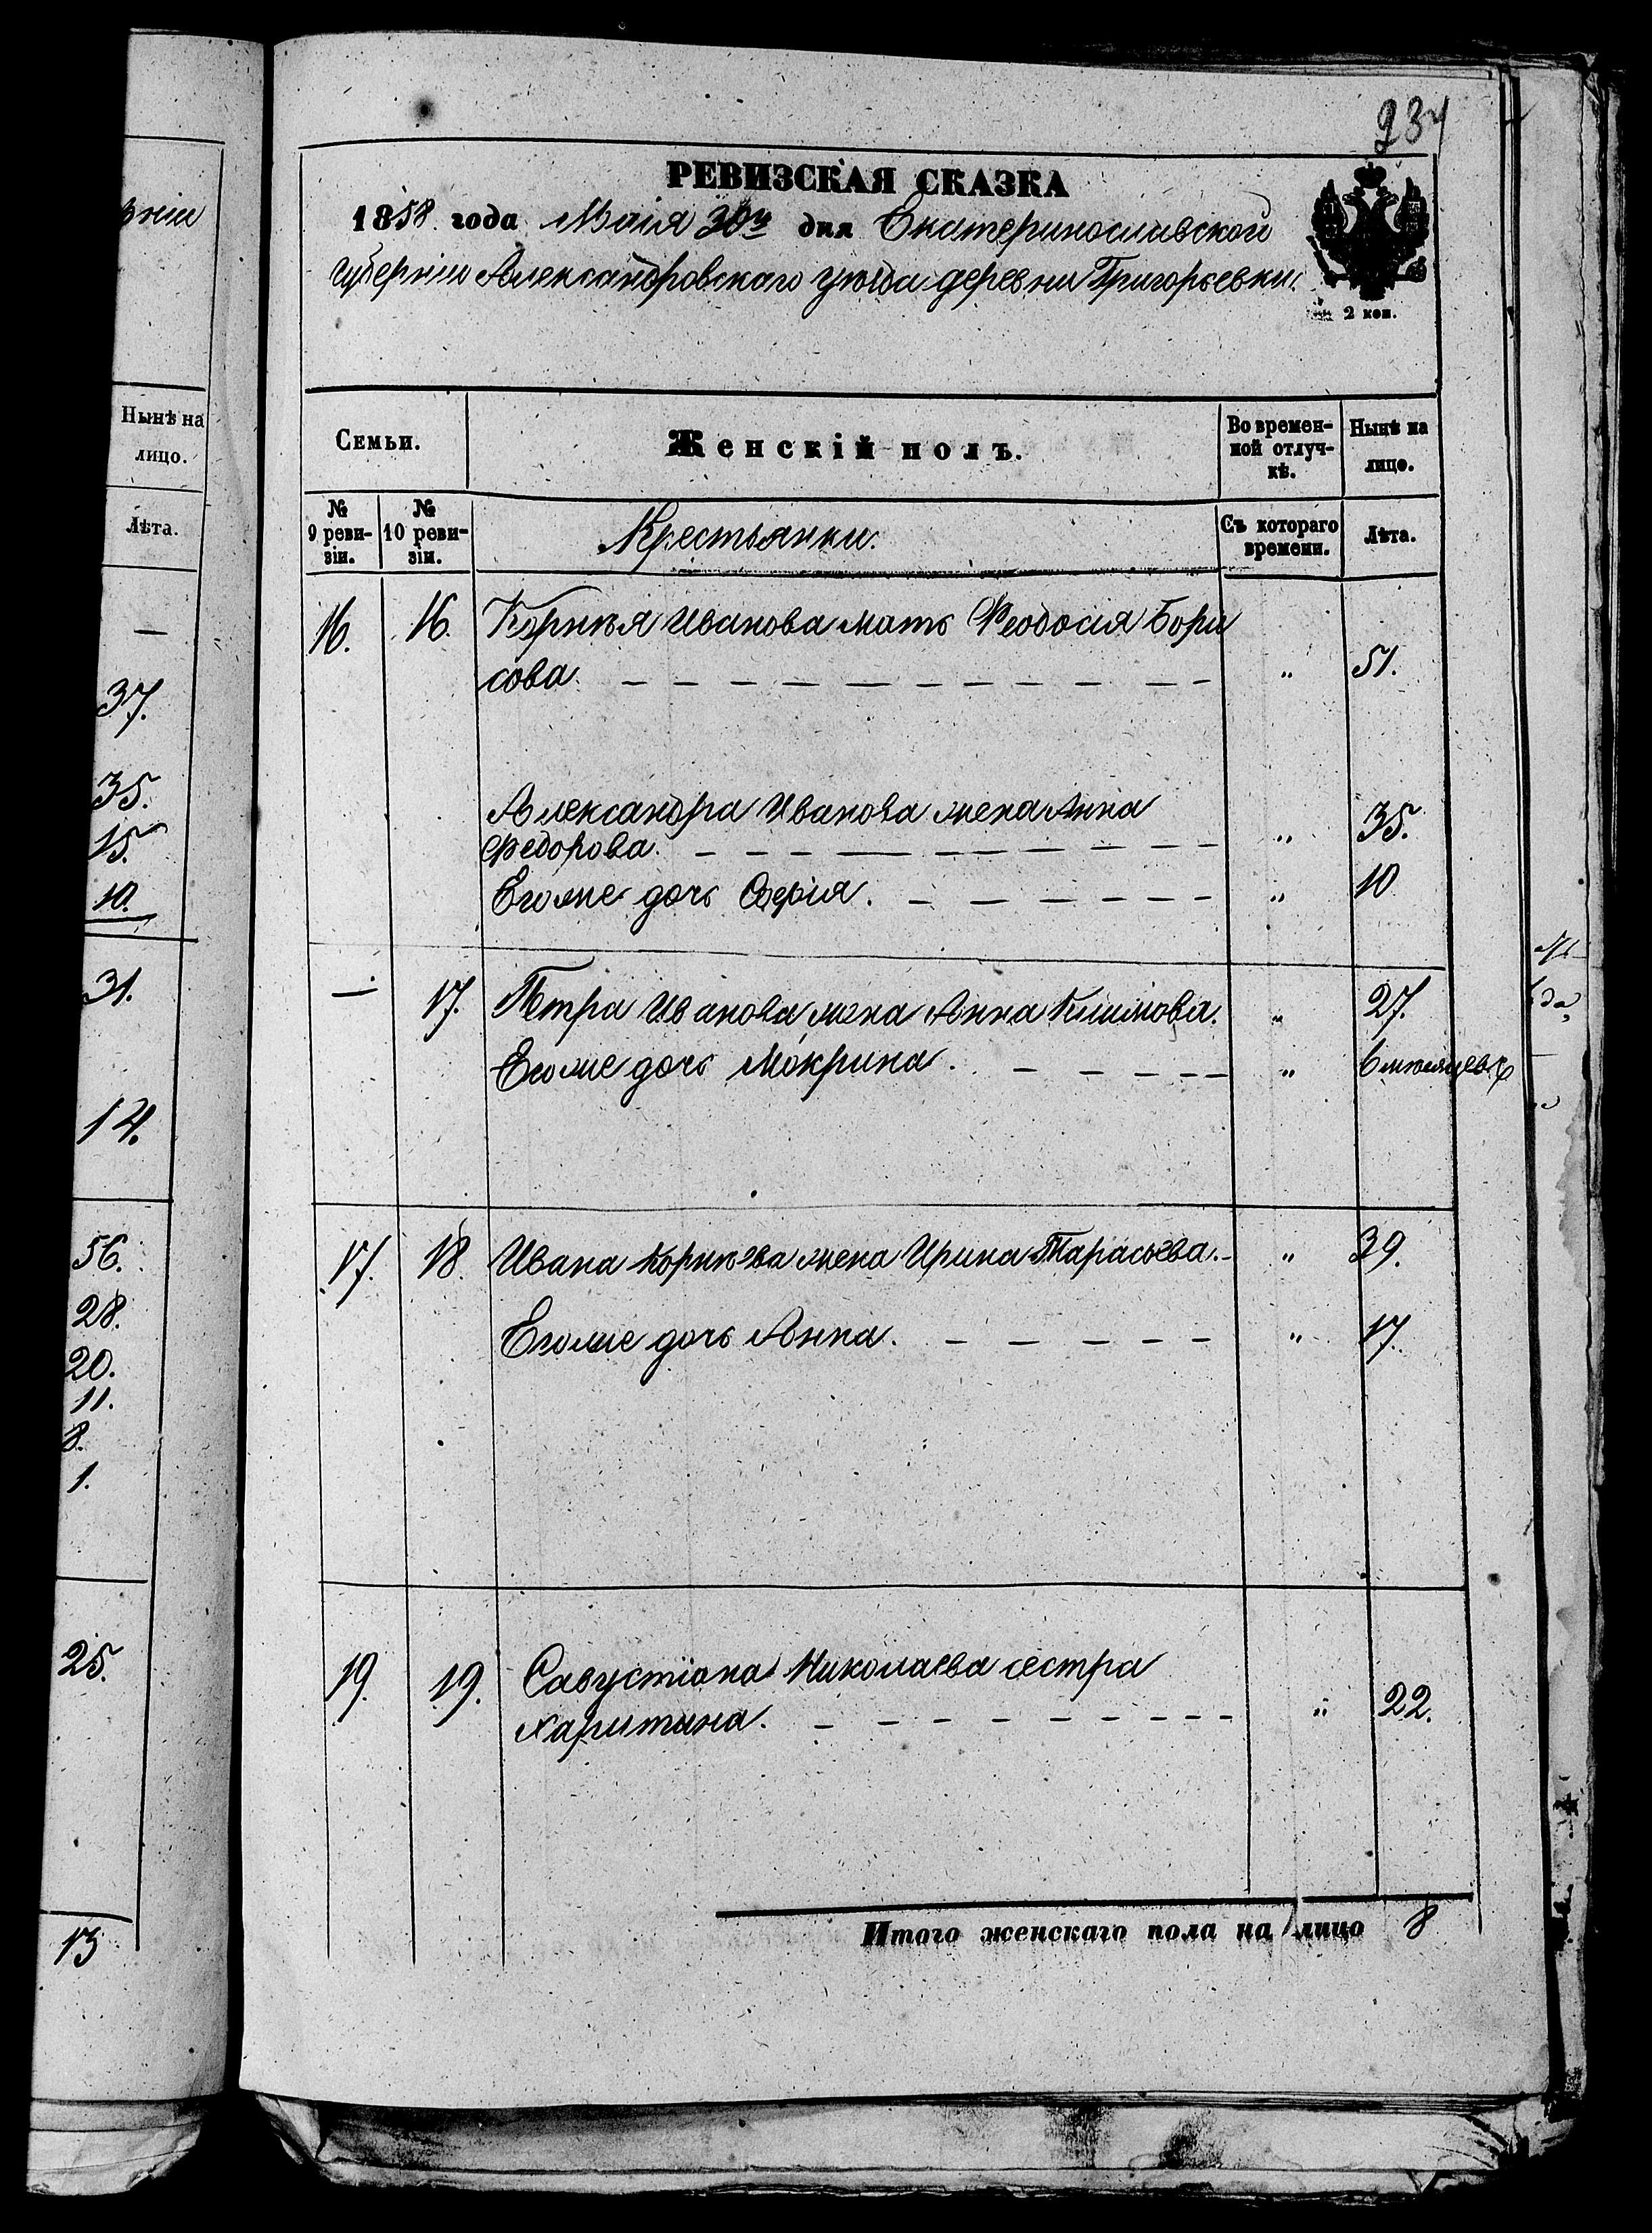 ѣніи
Нынѣ на
лицо.
Лѣта.
—
37.
35.
15.
10.
31.
14.
56.
28.
20.
11.
8.
1.
25.
13
234
РЕВИЗСКАЯ СКАЗКА
1858. года Маія 30го дня Екатеринославской
губерніи Александровскаго уѣзда деревни Григорьевки.
2 коп.
Семьи.
Женскій полъ.
Во времен-
ной отлуч-
кѣ.
Нынѣ на
лицо.
№
9 реви-
зіи.
№
10 реви-
зіи.
Крестьянки.
Съ котораго
времени.
Лѣта.
16. 16. Корнѣя Иванова мать Феодосія Бори
сова. — — — — — — — — — — „ 51.
Александра Иванова жена Анна
Федорова. — — — — — — — — — „ 35.
Егоже дочь . — — — — — — „ 10
— 17. Петра Иванова жена Анна Климова. „ 27.
Егоже дочь Мокрина. — — — — — „ 6 мѣсяцевъ
17. 18. Ивана Корнѣева жена Ирина Тарасьева. — „ 39.
Егоже дочь Анна. — — — — — „ 17.
19. 19. Савустіана Николаева сестра
Харитина. — — — — — — — — — „ 22.
Итого женскаго пола на лицо 8